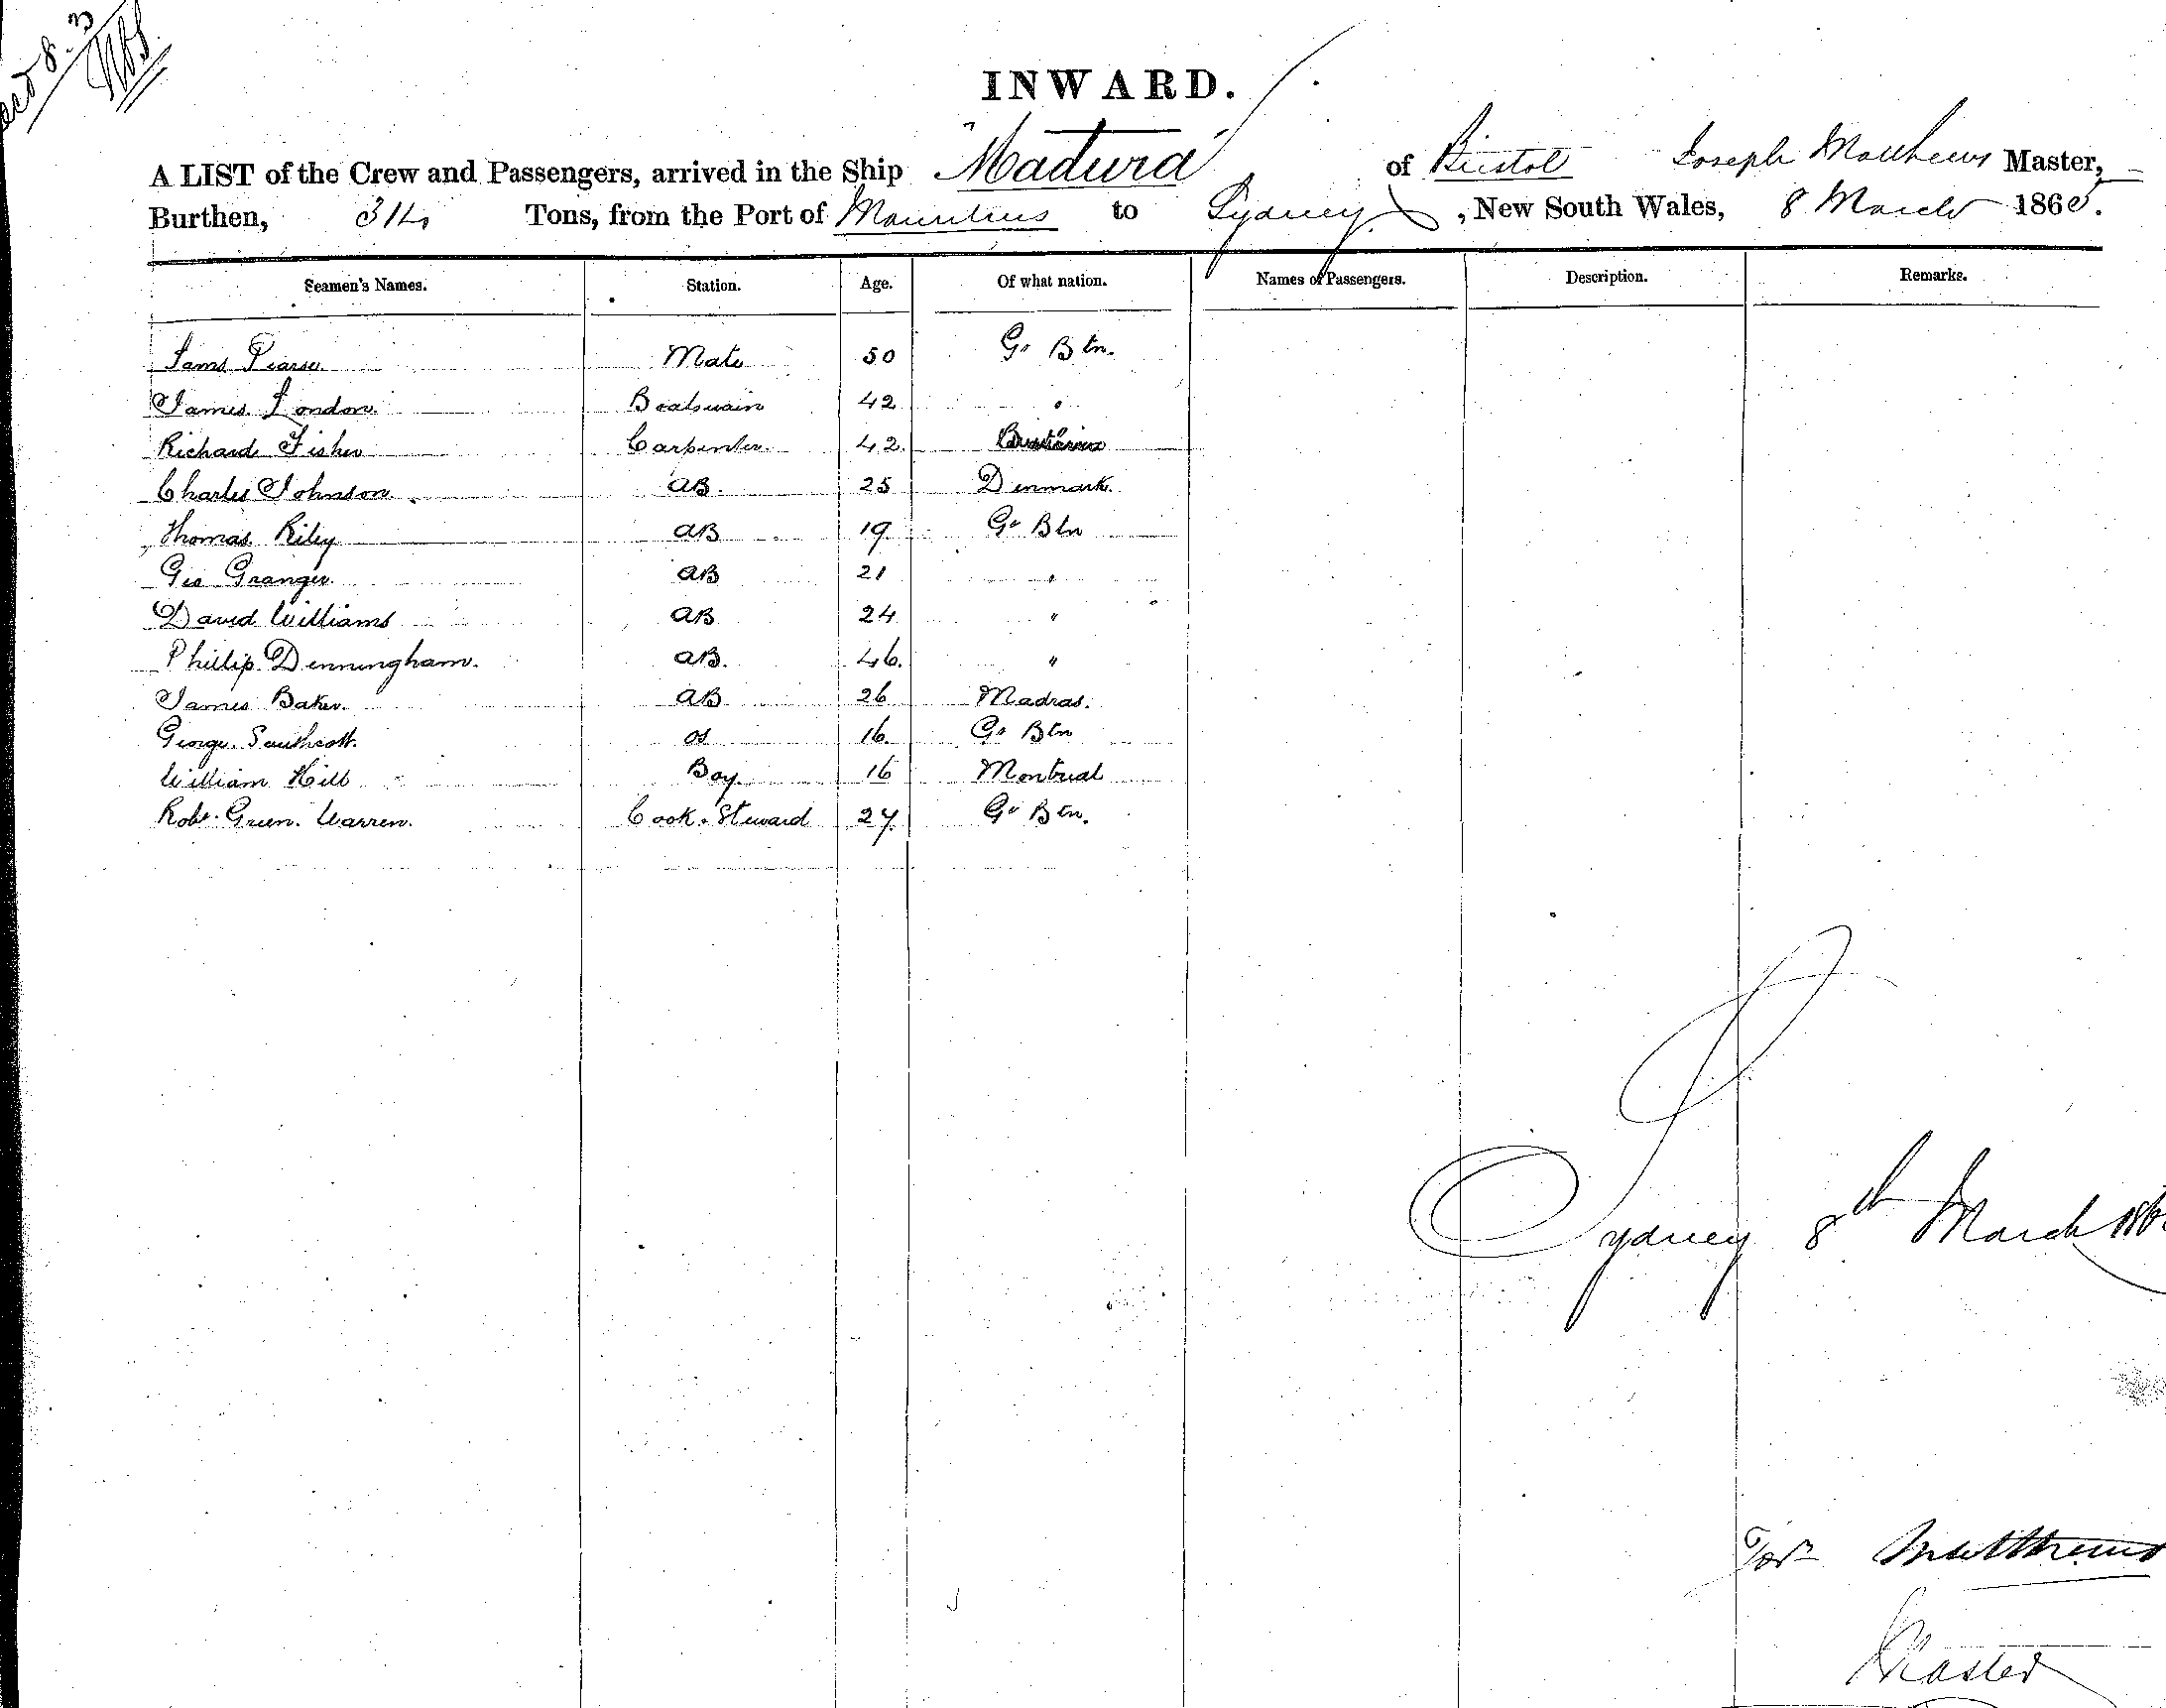 8.3
INWARD.
A LIST of the Crew and Passengers, arrived in the Ship "Madura" of Bristol Joseph Matthews Master,
Burthen, 314 Tons, from the Port of Mauritius to Sydney, New South Wales, 8 March 186
Seamen's Names. Station. Age. Of what nation. Names of Passengers. Description. Remarks.
Pearse Mate 50 Gt Btn.
James London Boatswain 42 "
Richard Fisher Carpenter 42 "
Charles Johnson AB. 25 Denmark
Thomas Riley AB 19 Gt Btn
Geo Granger AB 21 "
David Williams AB 24 "
Phillip Denningham. AB. 46. "
James Baker. AB 26 Madras.
George Southcott. OS 16 Gt Btn
William Hill Boy 16 Montreal
Robt. Green. Warren. Cook. Steward 27 Gt Btn.
Sydney 8th March 186
Josh Matthews
Master